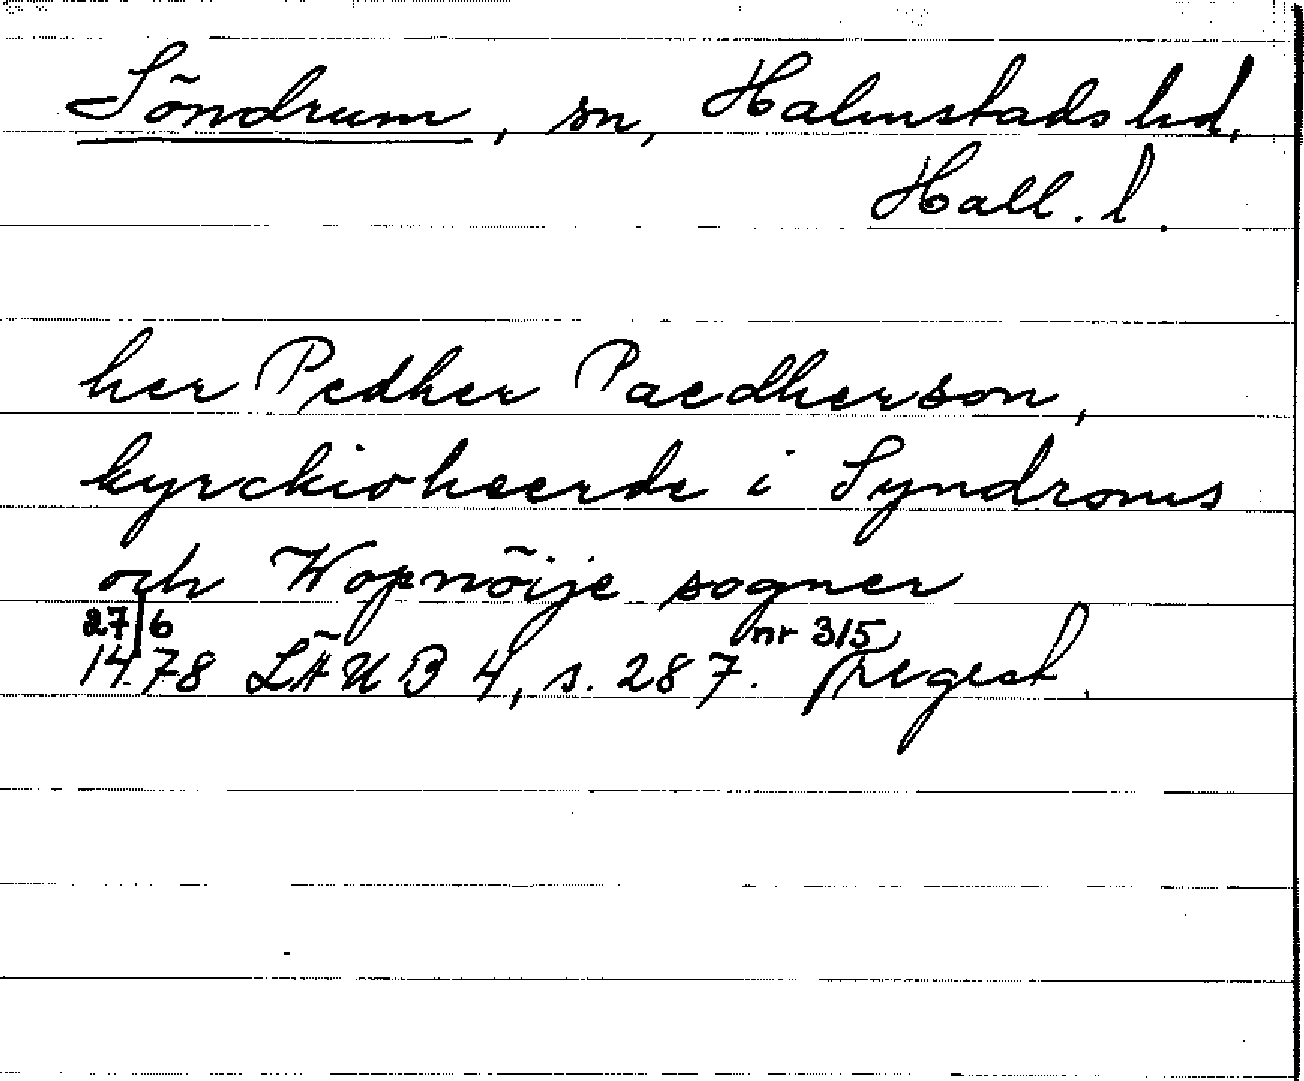 Söndrum, sn, Halmstads hd,
Hall. l.
her Pedher Paedherson,
kyrckioheerde i Syndroms
och Wopnöije sogner
27/6 nr 315
1478 LÄUB 4, s. 287. Regest.